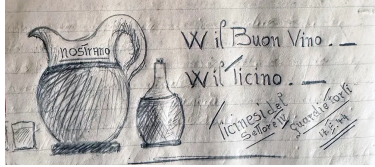 NOSTRANO
W il Buon Vino. –
W il Ticino. –
Ticinesi del
Settore IV
Guardie forti